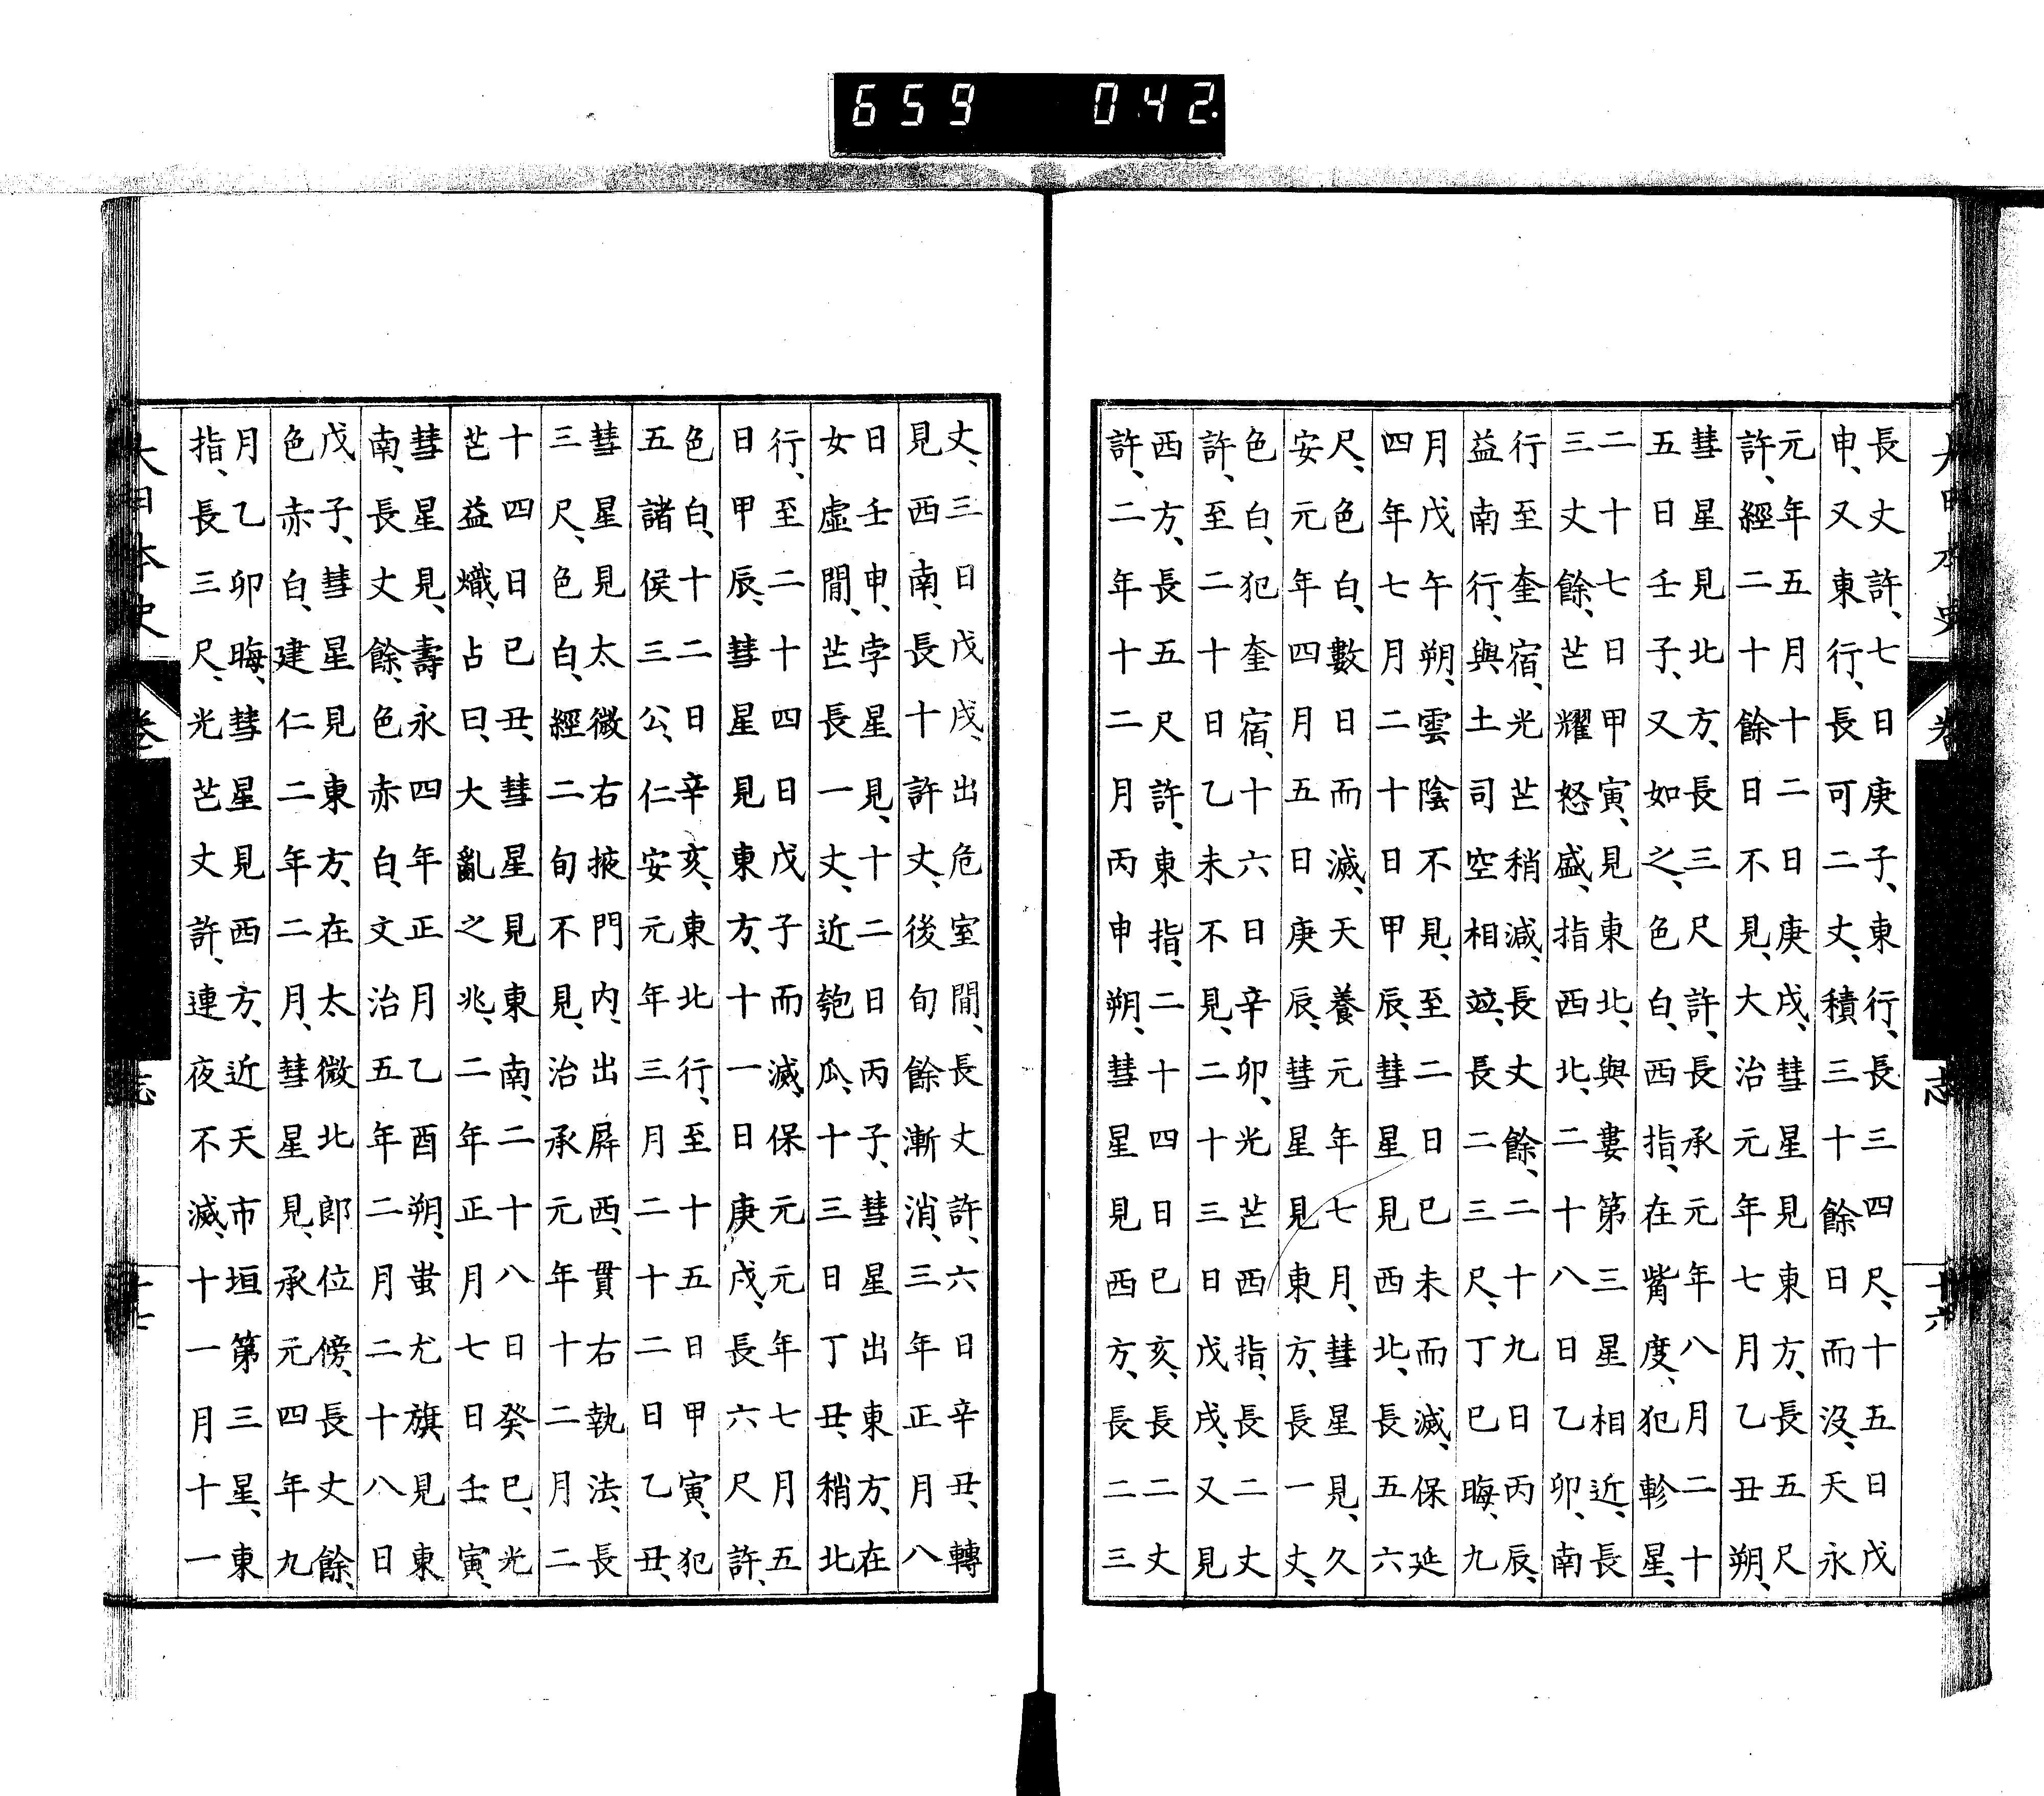 659 042
大日本史 卷 志 十六
長丈許、七日庚子、東行、長三四尺、十五日戊
申、又東行、長可二丈、積三十餘日而沒、天永
元年五月十二日庚戌、彗星見東方、長五尺
許、經二十餘日不見、大治元年七月乙丑朔、
彗星見北方、長三尺許、長承元年八月二十
五日壬子、又如之、色白、西指、在觜度、犯軫星、
二十七日甲寅、見東北、與婁第三星相近、長
三丈餘、芒耀怒盛、指西北、二十八日乙卯、南
行至奎宿、光芒稍減、長丈餘、二十九日丙辰、
益南行、與土司空相竝、長二三尺、丁巳晦、九
月戊午朔、雲陰不見、至二日己未而滅、保延
四年七月二十日甲辰、彗星見西北、長五六
尺、色白、數日而滅、天養元年七月、彗星見、久
安元年四月五日庚辰、彗星見東方、長一丈、
色白、犯奎宿、十六日辛卯、光芒西指、長二丈
許、至二十日乙未不見、二十三日戊戌、又見
西方、長五尺許、東指、二十四日己亥、長二丈
許、二年十二月丙申朔、彗星見西方、長二三
丈、三日戊戌、出危室間、長丈許、六日辛丑、轉
見西南、長十許丈、後旬餘漸消、三年正月八
日壬申、孛星見、十二日丙子、彗星出東方、在
女虛間、芒長一丈、近匏瓜、十三日丁丑、稍北
行、至二十四日戊子而滅、保元元年七月五
日甲辰、彗星見東方、十一日庚戌、長六尺許、
色白、十二日辛亥、東北行、至十五日甲寅、犯
五諸侯三公、仁安元年三月二十二日乙丑、
彗星見太微右掖門内、出屛西、貫右執法、長
三尺、色白、經二旬不見、治承元年十二月二
十四日己丑、彗星見東南、二十八日癸巳、光
芒益熾、占曰、大亂之兆、二年正月七日壬寅、
彗星見、壽永四年正月乙酉朔、蚩尤旗見東
南、長丈餘、色赤白、文治五年二月二十八日
戊子、彗星見東方、在太微北郎位傍、長丈餘、
色赤白、建仁二年二月、彗星見、承元四年九
月乙卯晦、彗星見西方、近天市垣第三星、東
指、長三尺、光芒丈許、連夜不滅、十一月十一
大日本史 卷 志 十七